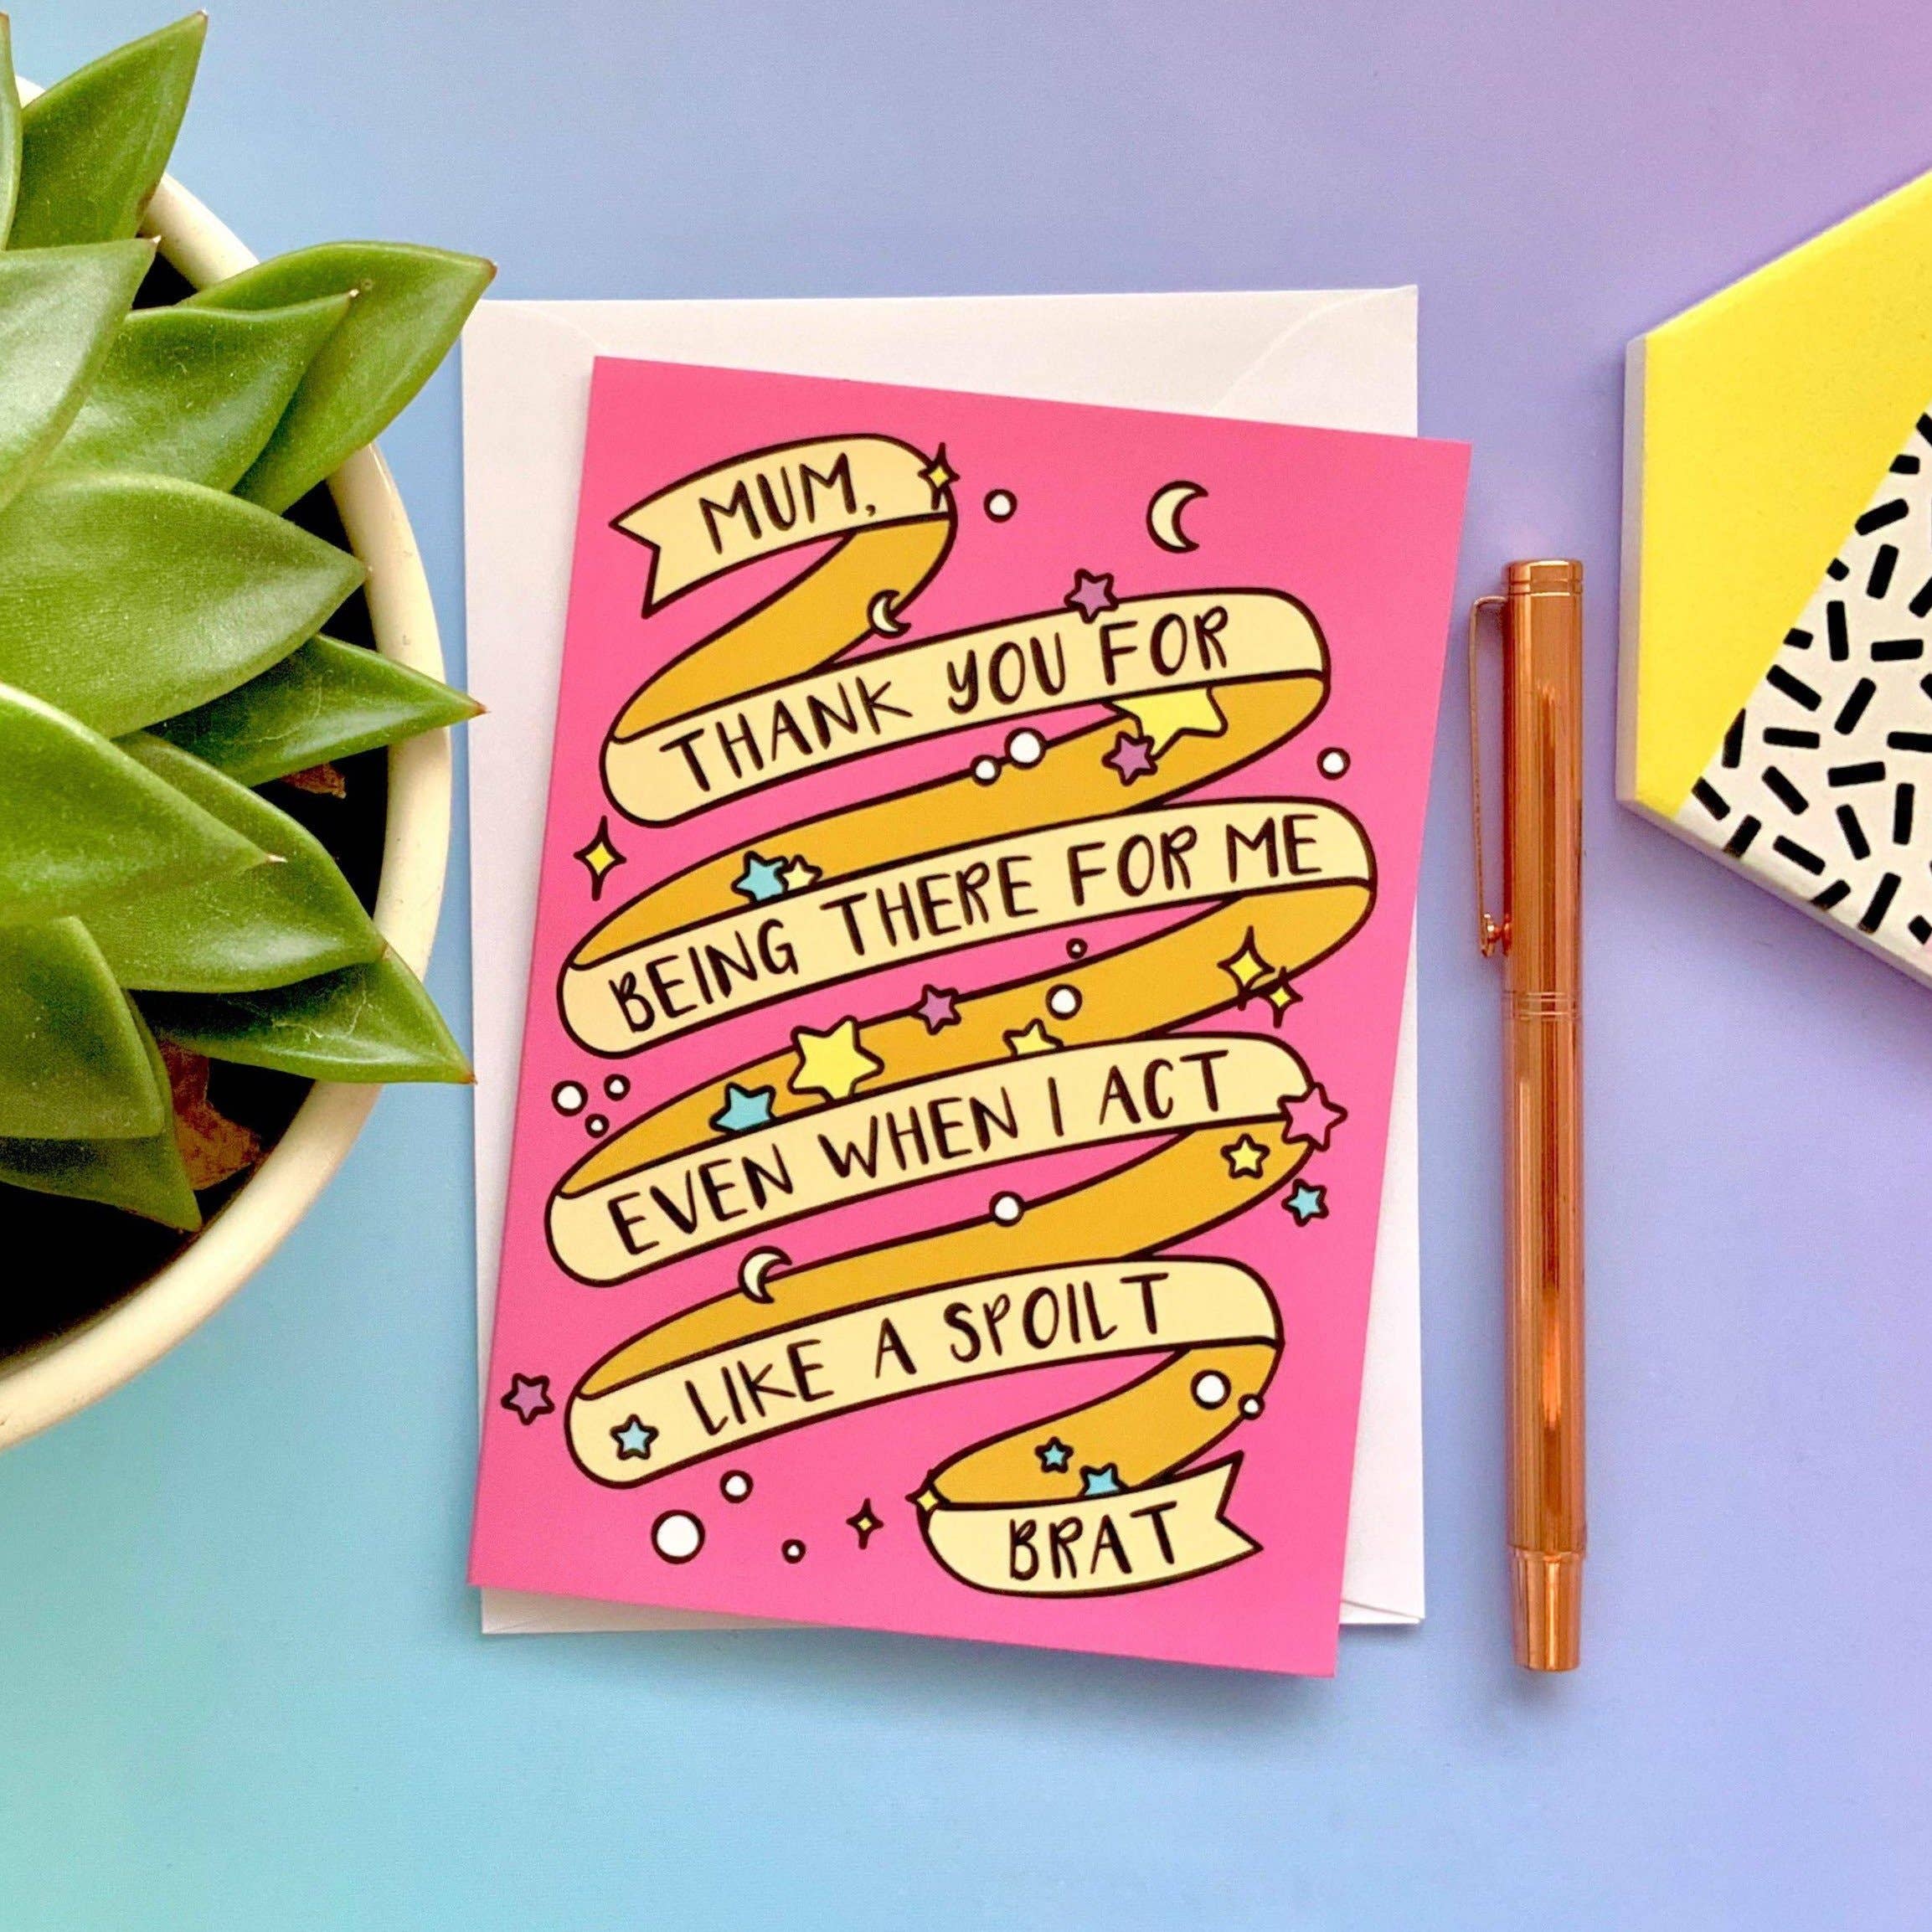 MUM,
THANK YOU FOR
BEING THERE FOR ME
EVEN WHEN I ACT
LIKE A SPOILT
BRAT